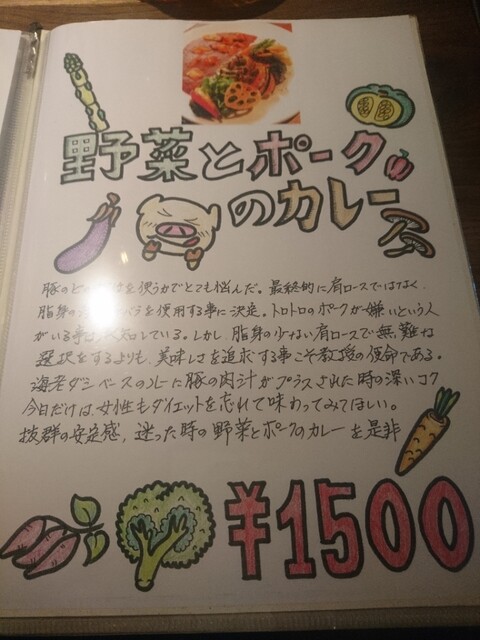 野菜とポーク
のカレー
豚のどを使うかでとても悩んだ。最終的に肩ロースではなく、
脂身のバラを使用する事に決定。トロトロのポークが嫌いという人
がいる事は知している。しかし、脂身の少ない肩ロースで無難な
選択をするよりも、美味しさを追求する事こそ教授の使命である。
海老ダシベースのルーに豚の肉汁がプラスされた時の深いコク
今日だけは、女性もダイエットを忘れて味わってみてほしい。
抜群の安定感、迷った時の野菜とポークのカレーを是非
¥1500